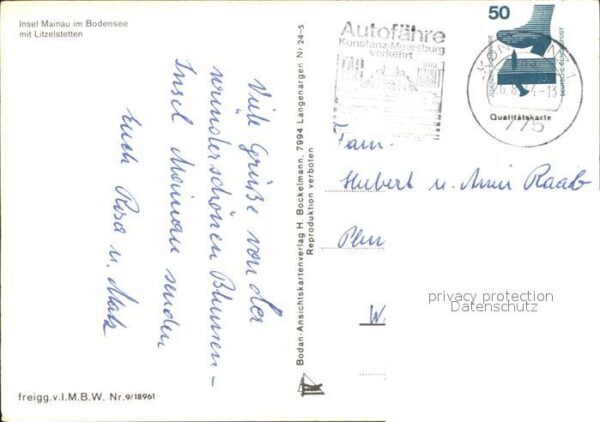 Insel Mainau im Bodensee
mit Litzelstetten
Viele Grüße von der
wunderschönen Blumen-
Insel Mainau senden
Euch Rosa u.
freigg.v.I.M.B.W. Nr.9/18961
Bodan-Ansichtskartenverlag H. Bockelmann, 7994 Langenargen Nr 24-5
Reproduktion verboten
Autofähre
Konstanz-Meersburg
verkehrt
50
DEUTSCHE BUNDESPOST
775
Qualitätskarte
Fam.
Hubert u. Anni Raab
W.
privacy protection
Datenschutz